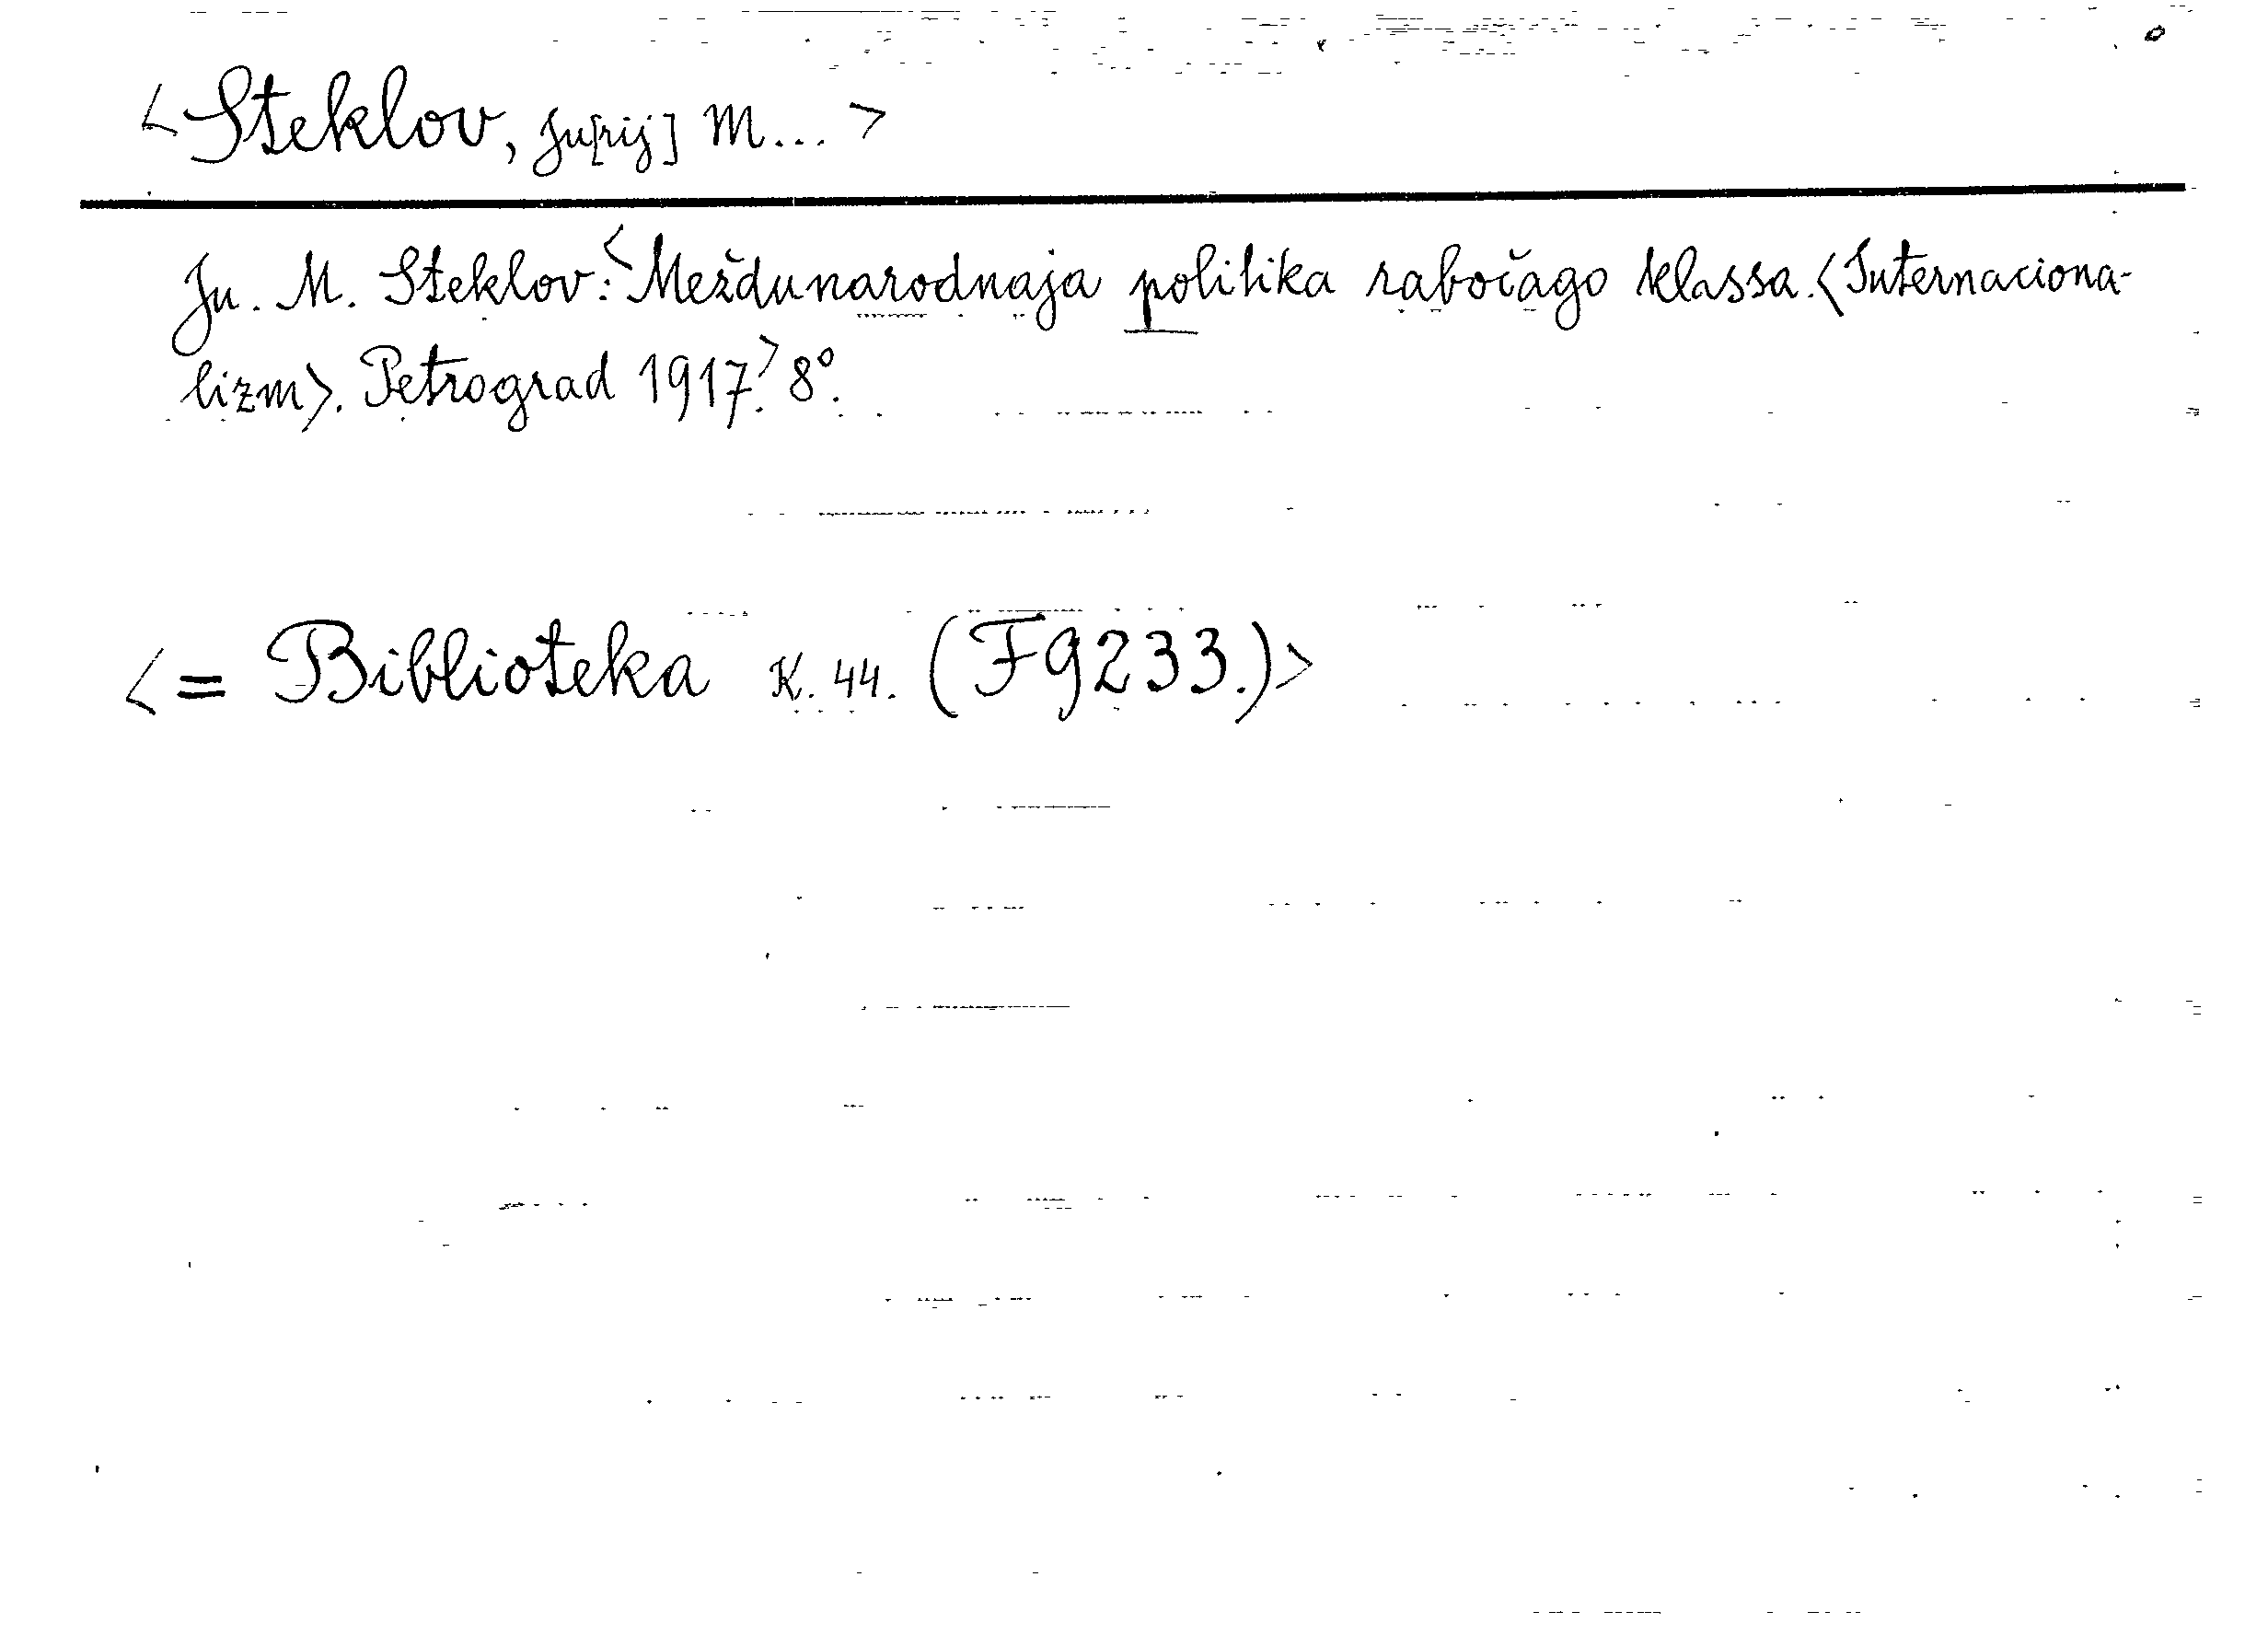 <Steklov, Ju[rij] M...>
Ju. M. Steklov: <Meždunarodnaja politika rabočago klassa. <Internaciona-
lizm>. Petrograd 1917.> 8°.
<= Biblioteka K. 44. (F9233.)>